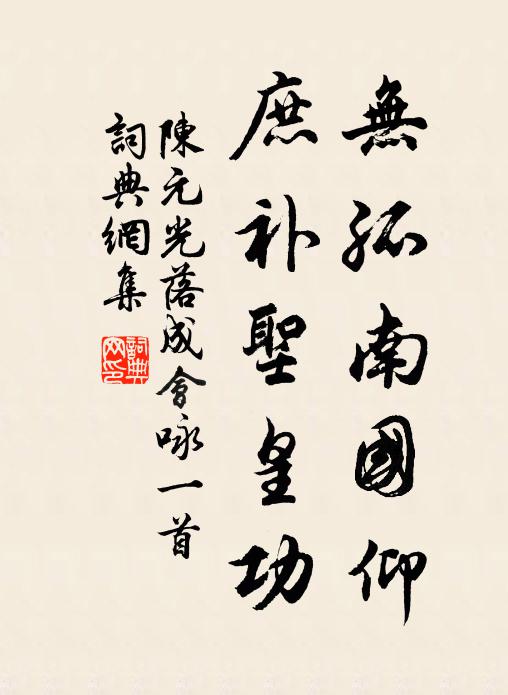 無孤南國仰
庶补聖皇功
陳元光落成會咏一首
詞典網集
詞典網印